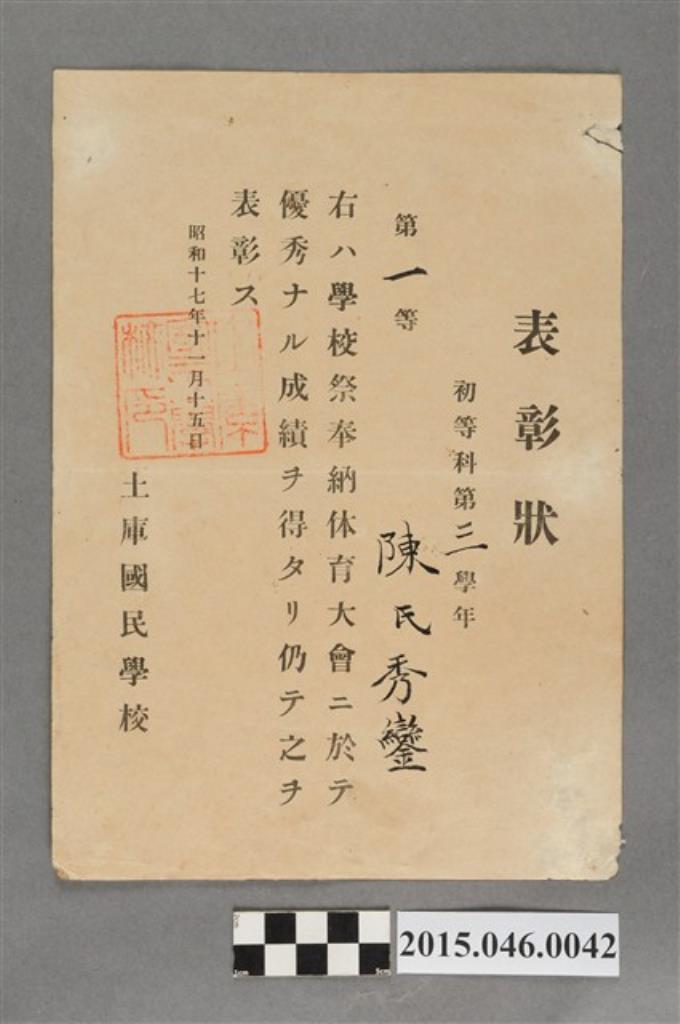 表彰狀
初等科第三學年
第一等
陳氏秀鑾
右ハ學校祭奉納体育大會ニ於テ
優秀ナル成績ヲ得タリ仍テ之ヲ
表彰ス
昭和十七年十一月十五日
土庫國民學校
2015.046.0042